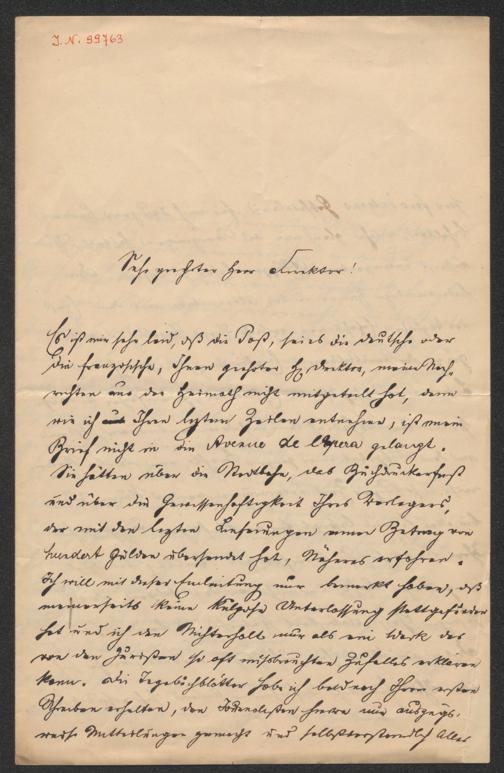 J. N. 99763
Sehr geehrter Herr Direktor!
Es ist mir sehr leid, daß die Post, sei es die deutsche oder
die französische, Ihnen geehrter H. Direktor, meine Nach-
richten aus der Heimath nicht mitgeteilt hat, denn
wie ich aus Ihren lezten Zeilen entnehme, ist mein
Brief nicht in die Avenue de l'Opera gelangt.
Sie hätten über die Stadtbahn, das Buchdruckerfest
und über die Gewissenhaftigkeit Ihres Verlegers,
der mit den lezten Lieferungen einen Betrag von
hundert Gulden übersendet hat, Näheres erfahren.
Ich will mit dieser Einleitung nur bemerkt haben, daß
meinerseits keine kulpose Unterlassung stattgefunden
hat und ich den Nichterhalt nur als ein Werk des
von den Juristen so oft misbrauchten Zufalles erklären
kann. Die Tagebuchblätter habe ich bald nach Ihrem ersten
Schreiben erhalten, den Journalisten hievon nur auszugs-
weise Mitteilungen gemacht und selbstverständlich Alles